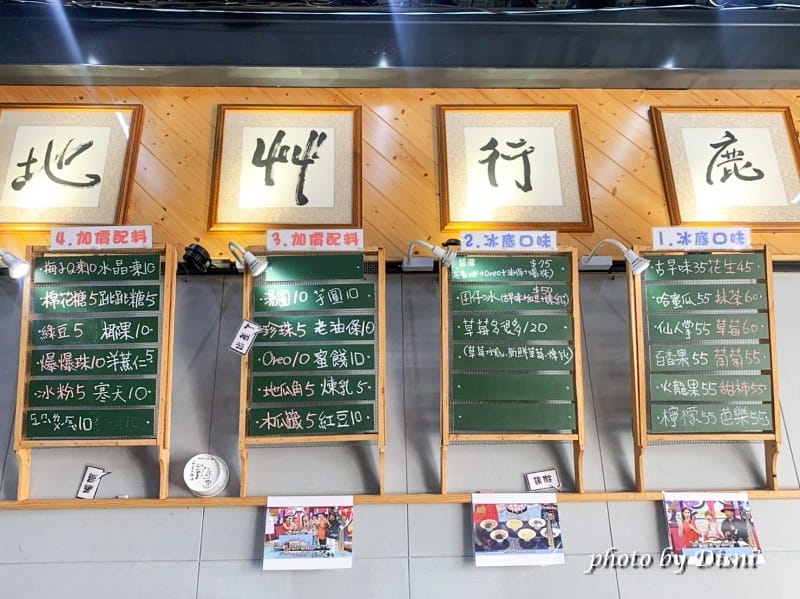 地 艸 行 鹿
4.加價配料
梅子Q凍10 水晶凍10
棉花糖5 跳跳糖5
綠豆5 椰果10
爆爆珠10 洋薏仁5
冰粉5 寒天10
3.加價配料
湯圓10 芋圓10
珍珠5 老油條10
Oreo10 蜜餞10
地瓜角5 煉乳5
木瓜籤5 紅豆10
2.冰底口味
草莓多很多120
1.冰底口味
古早味35 花生45
哈蜜瓜55 抹茶60
仙人掌55 草莓60
百香果55 葡萄55
火龍果55 甜柿55
檸檬55 芭樂55
photo by Disni